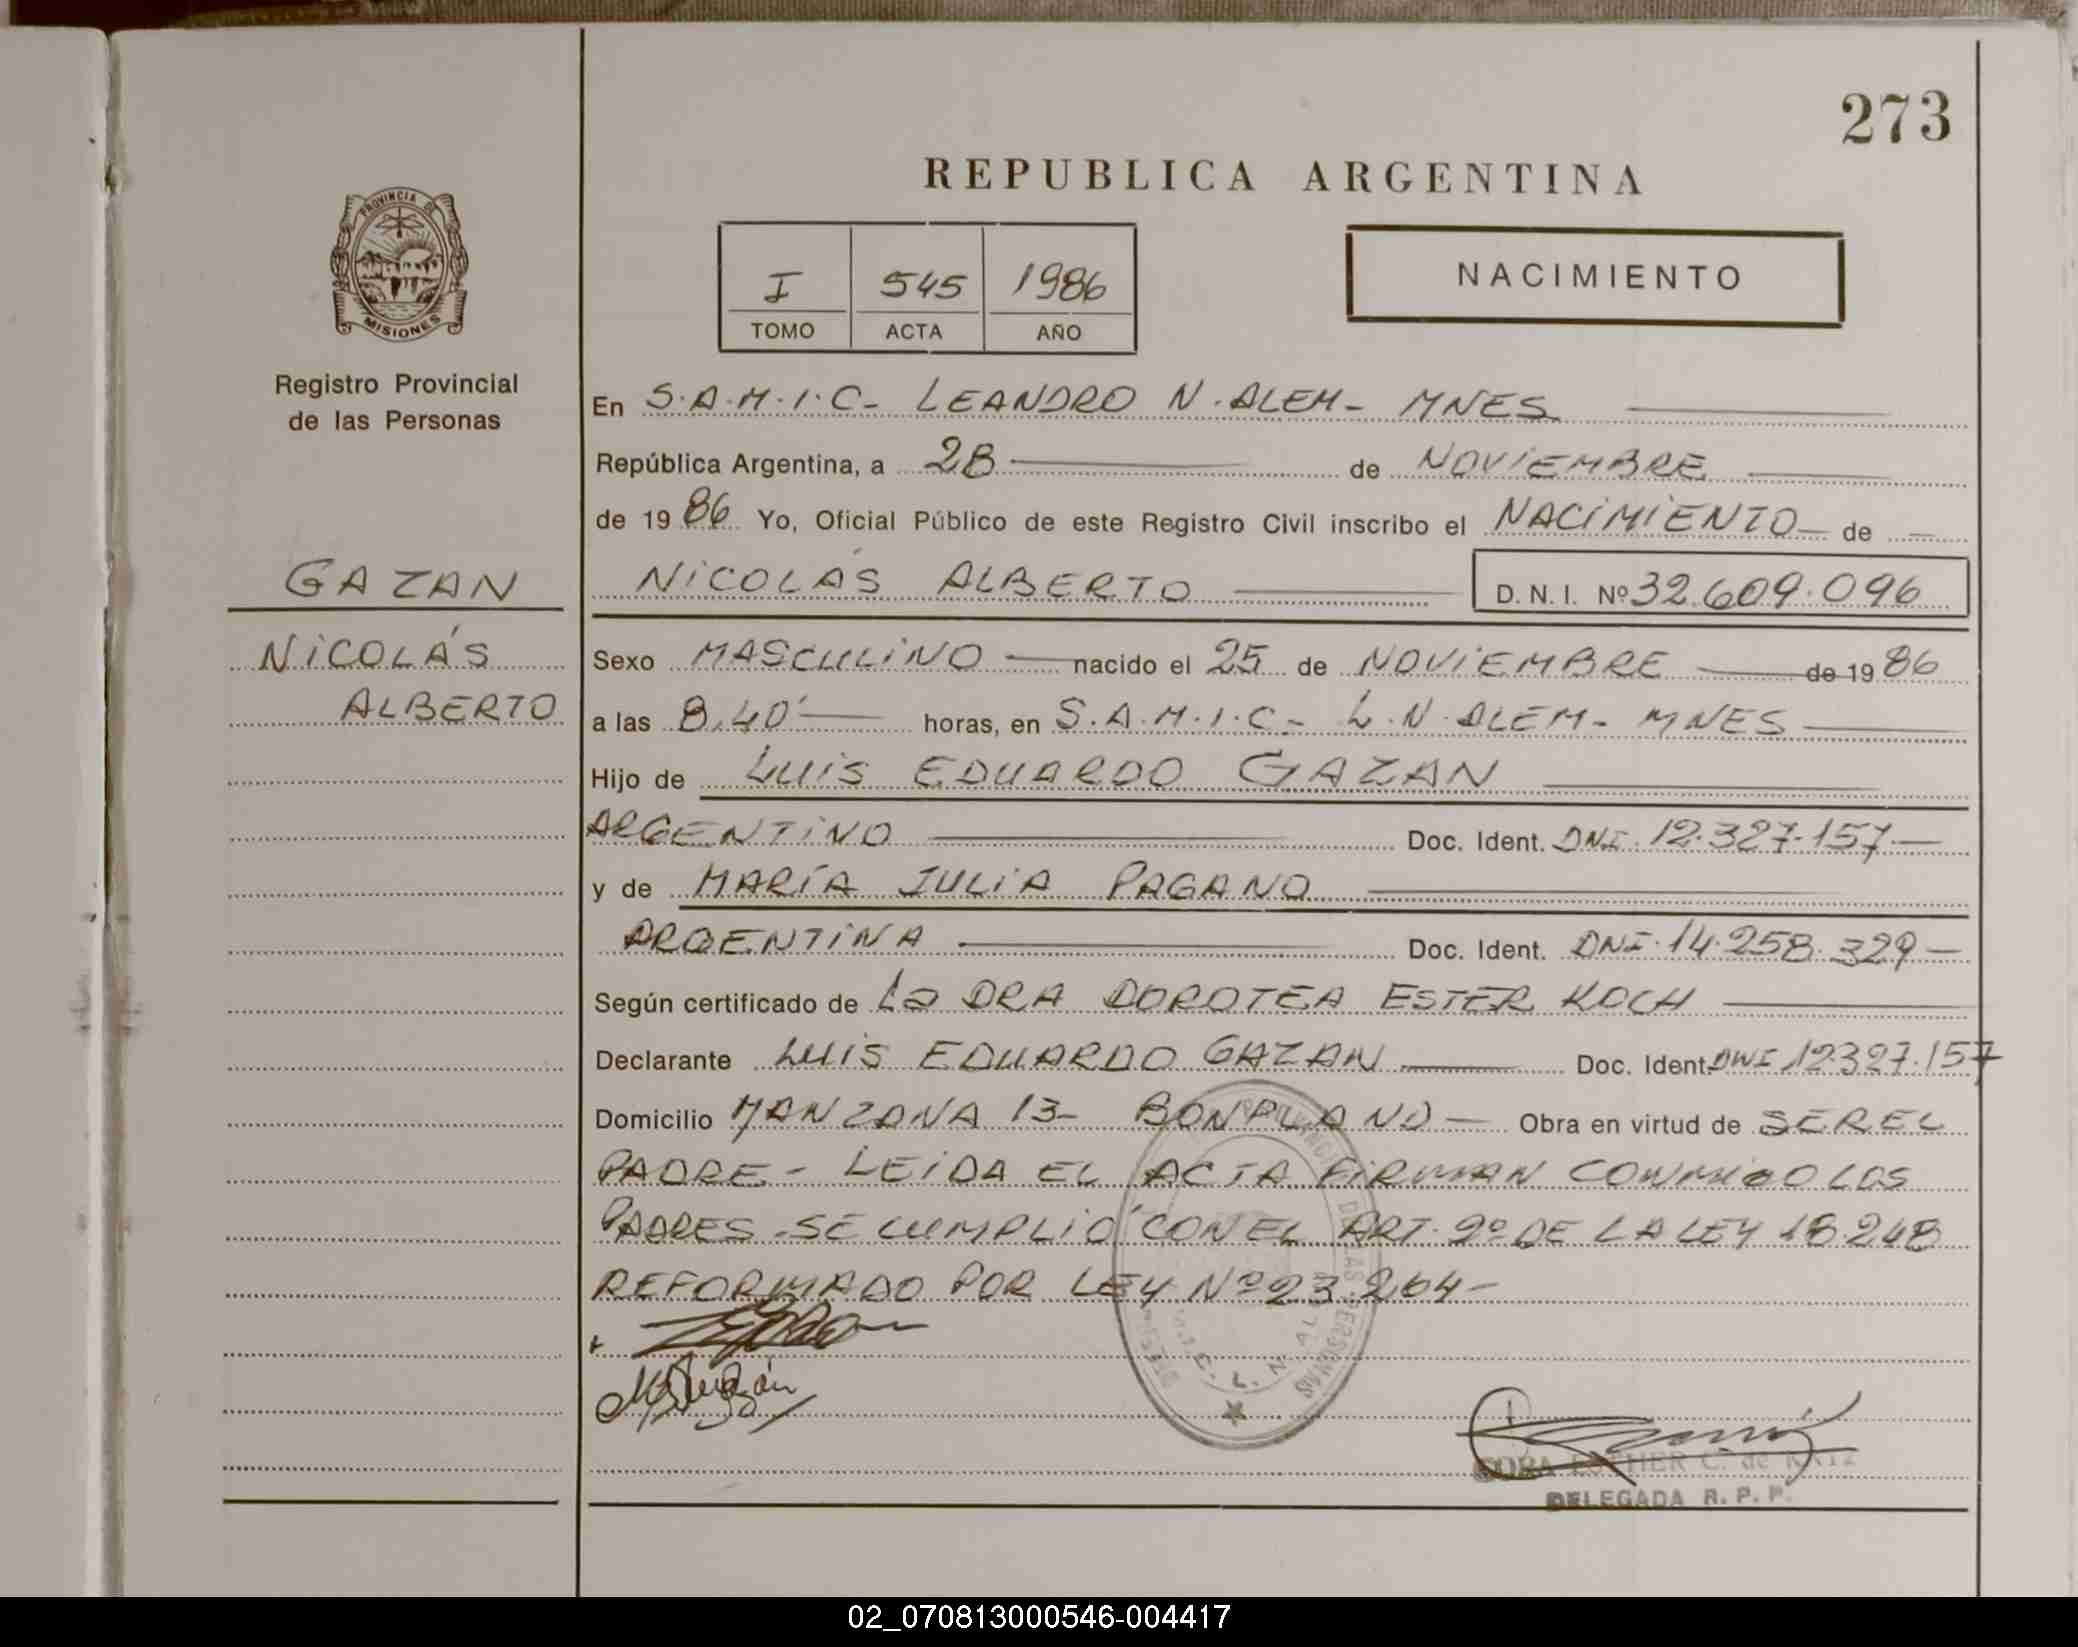 273
REPUBLICA ARGENTINA
PROVINCIA DE
MISIONES
Registro Provincial
de las Personas
I 545 1986
TOMO ACTA AÑO
NACIMIENTO
En S.A.M.I.C- LEANDRO N. ALEM- MNES
República Argentina, a 28 de NOVIEMBRE
de 1986 Yo, Oficial Público de este Registro Civil inscribo el NACIMIENTO de
GAZAN
NICOLÁS
ALBERTO
NICOLÁS ALBERTO D. N. I. Nº 32.609.096
Sexo MASCULINO nacido el 25 de NOVIEMBRE de 1986
a las 8,40' horas, en S.A.M.I.C- L.N. ALEM- MNES
Hijo de LUIS EDUARDO GAZAN
ARGENTINO Doc. Ident. DNI. 12.327.157.-
y de MARÍA JULIA PAGANO
ARGENTINA Doc. Ident. DNI. 14.258.329-
Según certificado de La DRA DOROTEA ESTER KOCH
Declarante LUIS EDUARDO GAZAN Doc. Ident. DNI 12327.157
Domicilio MANZANA 13- BONPLAND- Obra en virtud de SER EL
PADRE- LEIDA EL ACTA FIRMAN CONMIGO LOS
PADRES. SE CUMPLIÓ CON EL ART. 2º DE LA LEY 18.248
REFORMADO POR LEY Nº 23.264-
L. N. AL
DE LAS PERSONAS
CORA ESTHER C. de KATZ
DELEGADA R. P. P.
02_070813000546-004417